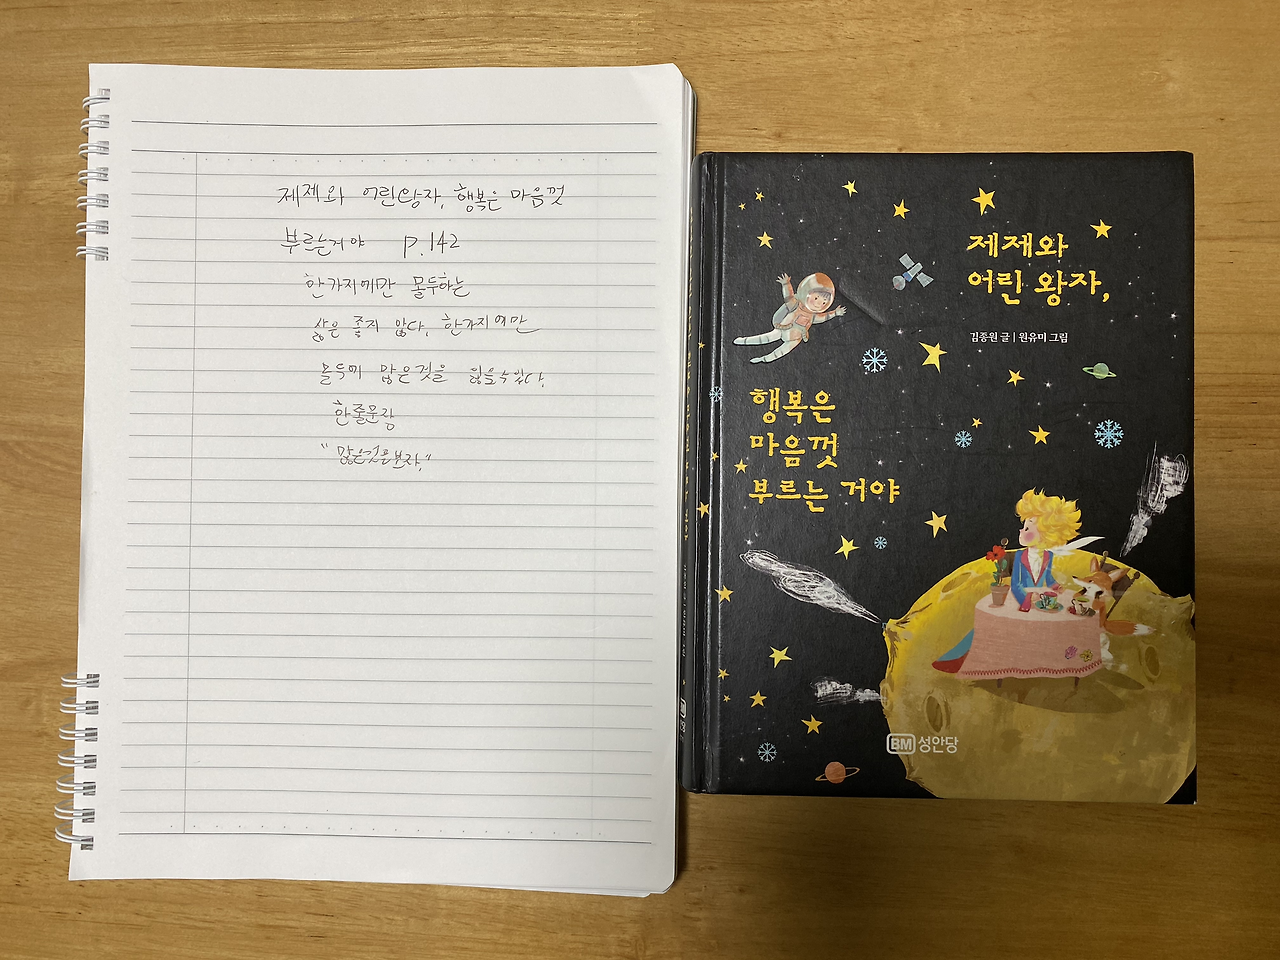 제제와 어린왕자, 행복은 마음껏
부르는거야 p.142
한가지에만 몰두하는
삶은 좋지 않다. 한가지에만
몰두에 많은것을 잃을수있다.
한줄문장
"많은것을보자."
제제와
어린 왕자,
김종원 글 | 원유미 그림
행복은
마음껏
부르는 거야
BM 성안당